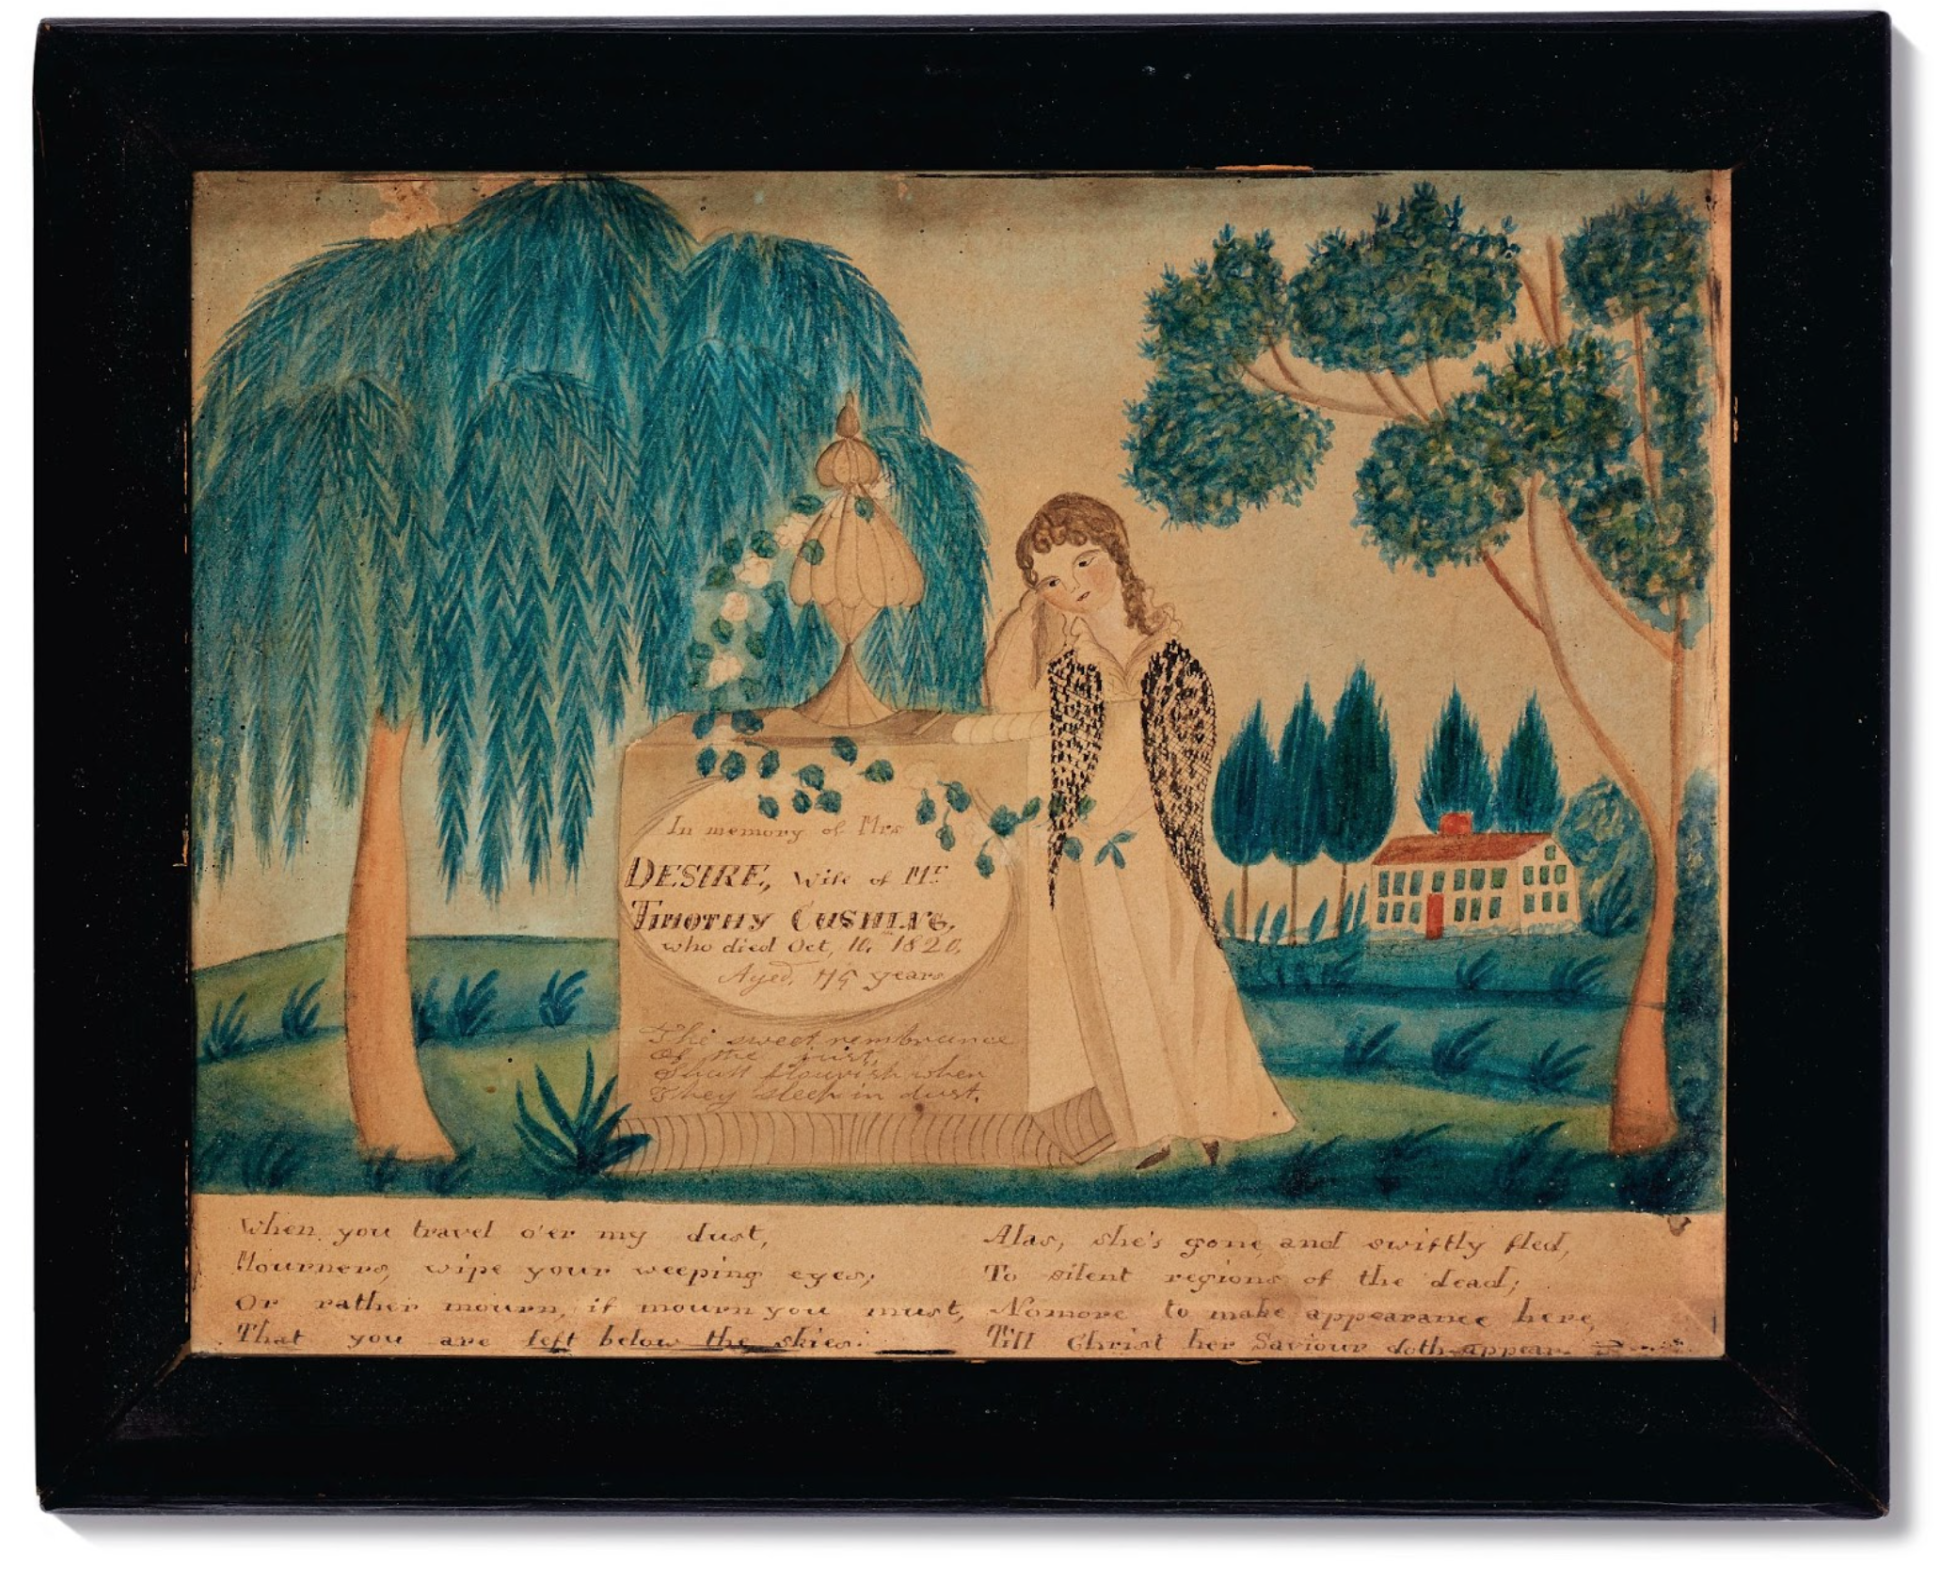 In memory of Mrs
DESIRE, Wife of Mr
TIMOTHY CUSHING,
who died Oct, 10, 1820,
Aged, 75 years
The sweet rembrance
Of the just,
Shall flourish when
They sleep in dust.
When you travel o'er my dust,
Mourners, wipe your weeping eyes;
Or rather mourn, if mourn you must,
That you are left below the skies:
Alas, she's gone and swiftly fled,
To silent regions of the dead;
Nomore to make appearance here,
Till Christ her Saviour doth appear.